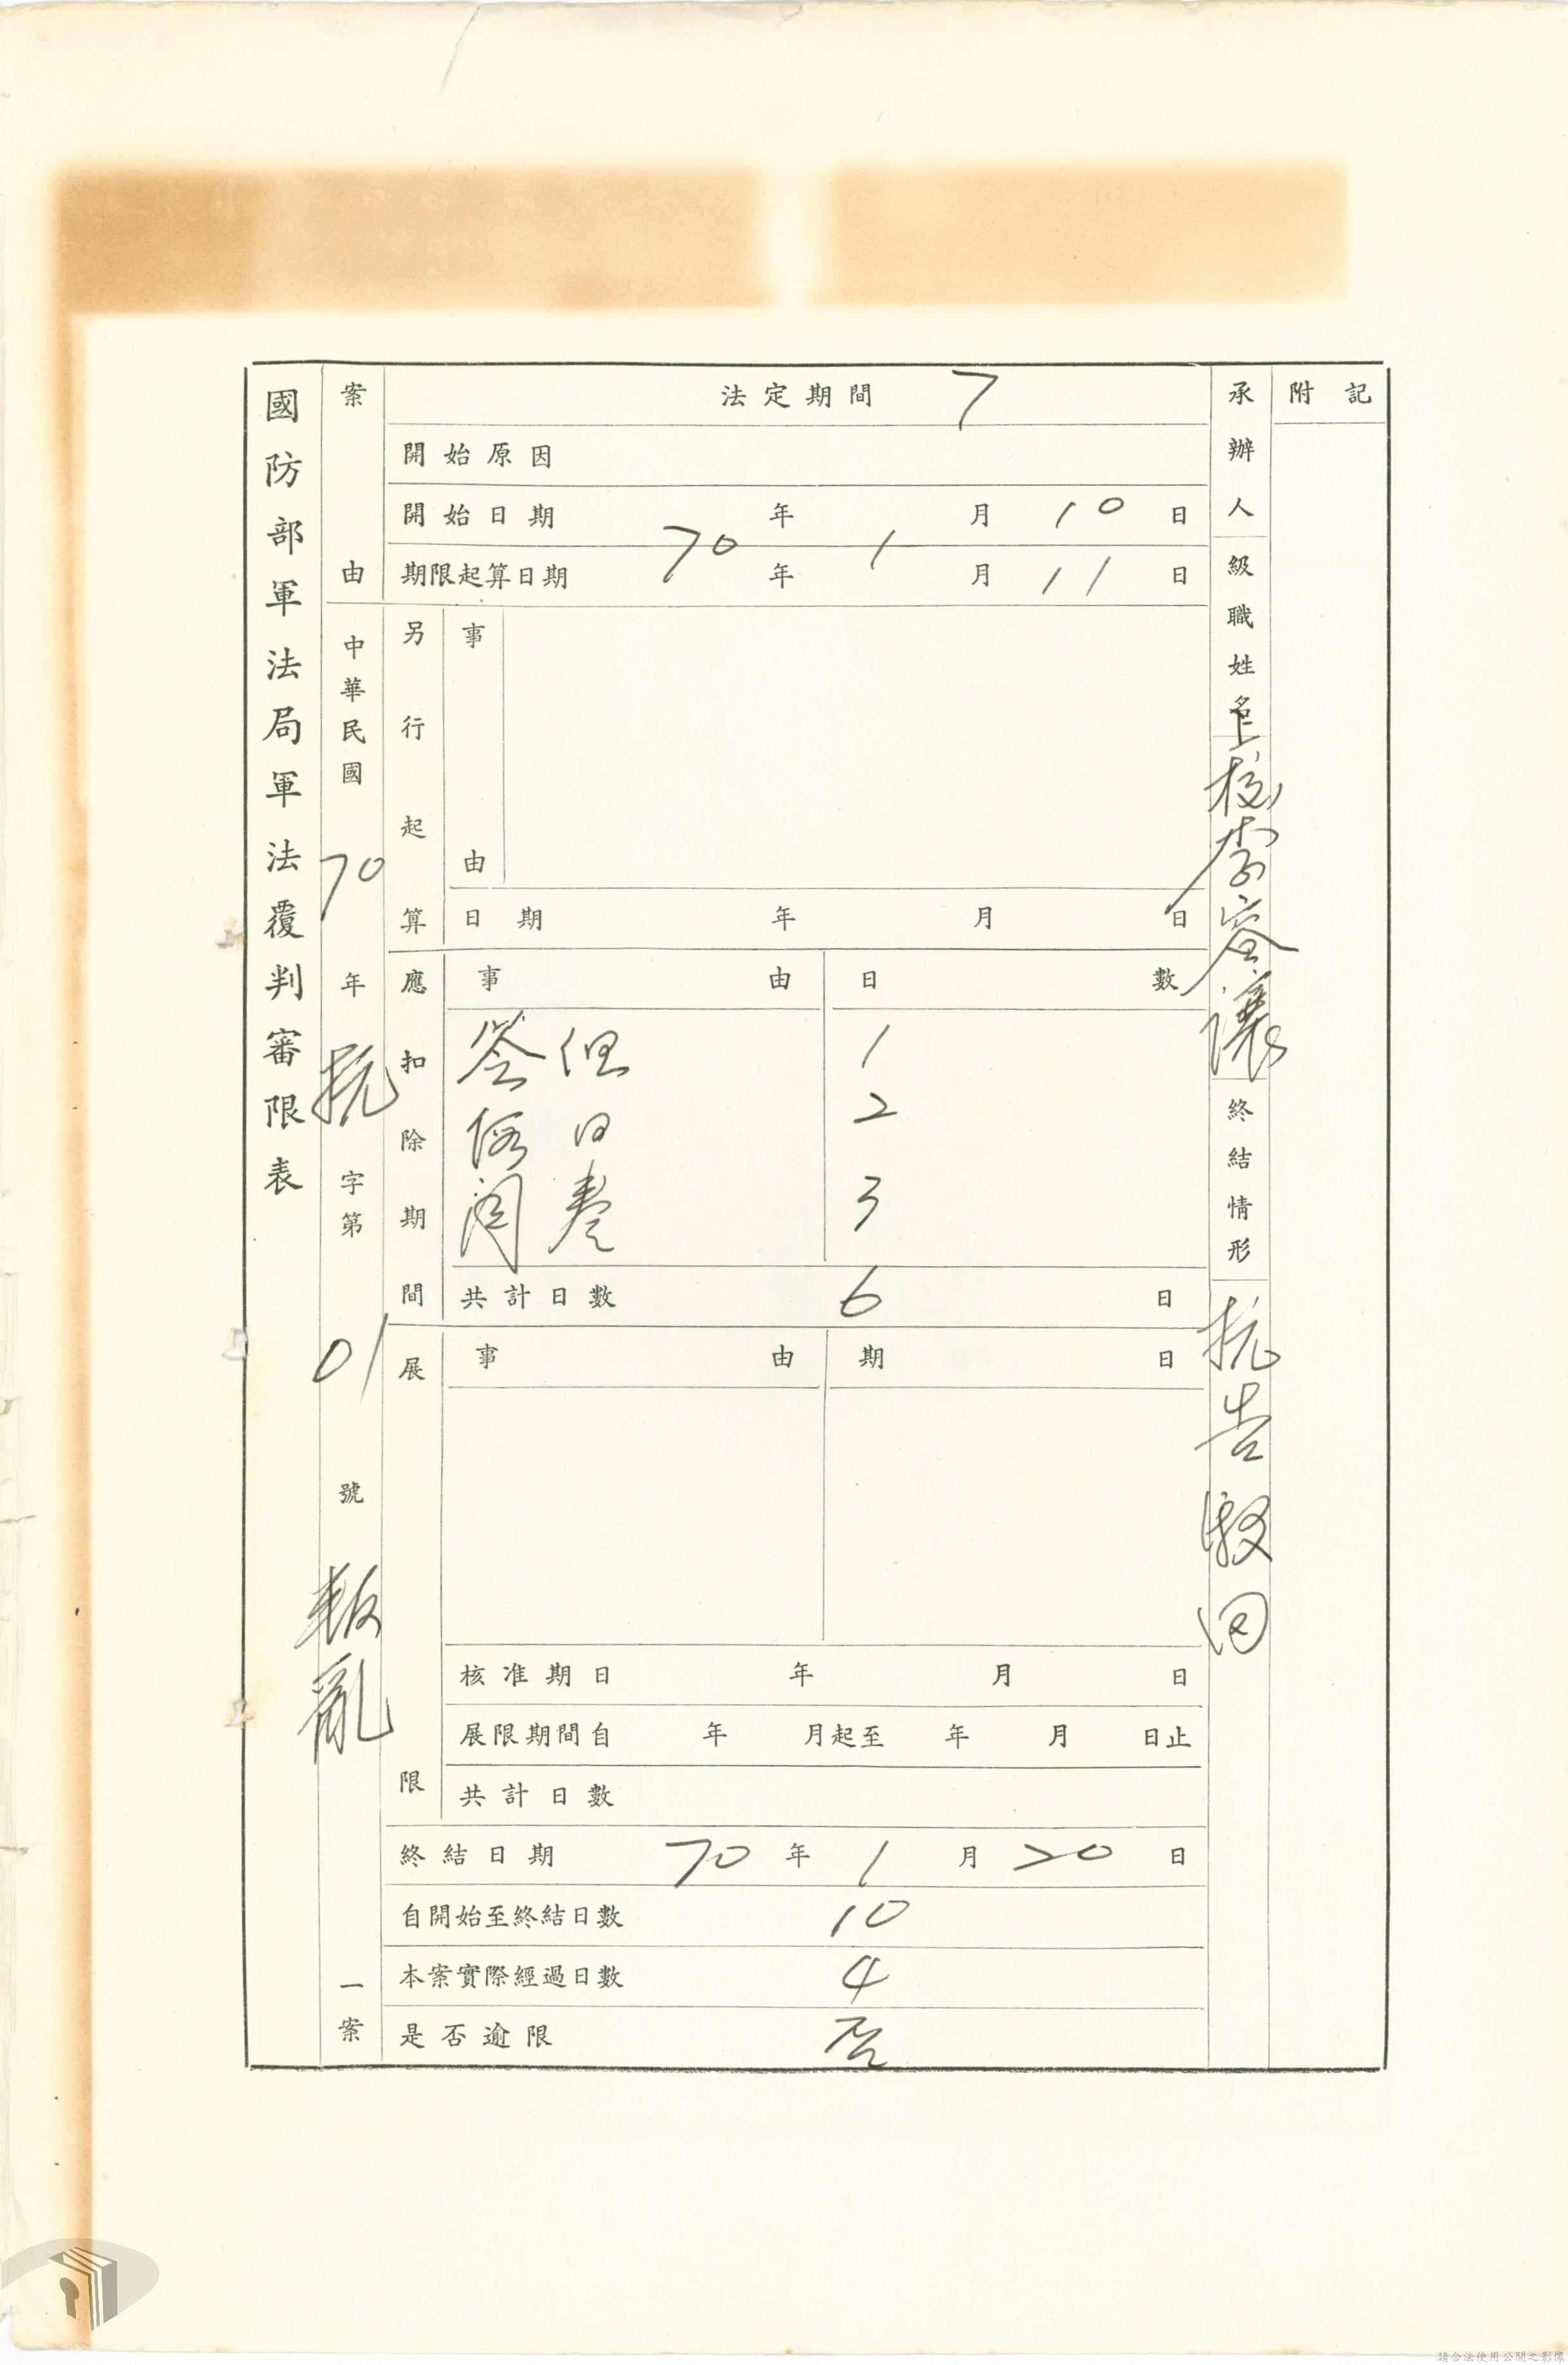 國防部軍法局軍法覆判審限表
案由
中華民國70年抗字第01號叛亂一案
法定期間 7
開始原因
開始日期 70年1月10日
期限起算日期 年 月11日
另行起算
事由
日期 年 月 日
應扣除期間
事由 日數
簽但 1
例日 2
閱卷 3
共計日數 6日
展限
事由 期日
核准期日 年 月 日
展限期間自 年 月起至 年 月 日止
共計日數
終結日期 70年1月20日
自開始至終結日數 10
本案實際經過日數 4
是否逾限 否
承辦人級職姓名 上校李容讓
終結情形 抗告駁回
附記
請合法使用公開之影像